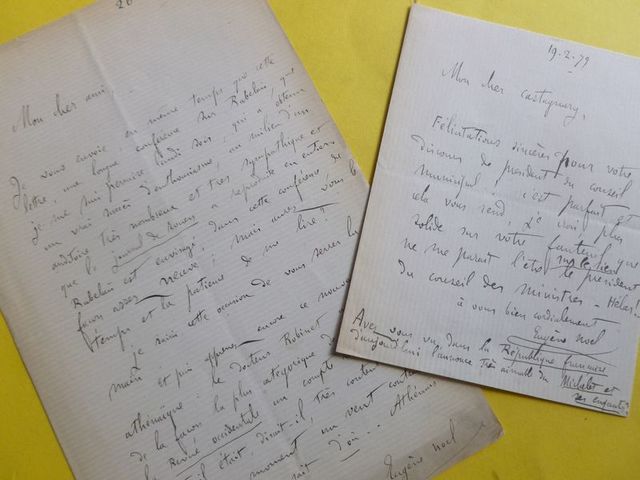 26
Mon cher ami,
Je vous envoie, en même temps que cette
lettre, une longue conférence sur Rabelais, que
je me suis permise jeudi soir, qui a obtenu
un vrai succès d'enthousiasme, au milieu d'un
auditoire très nombreux et très sympathique et
que le Journal de Rouen a reproduite en entier.
Rabelais est envisagé, dans cette conférence de
façon assez neuve; mais aurez-vous le
temps et la patience de me lire?
Je saisis cette occasion de vous serrer la
main et puis encore ce nouveau
athénaïque: le docteur Robinet
de la façon la plus catégorique
la Revue occidentale un compte
il était, disait-il, très content
moment, un vent
d'où... Athènes
Eugène Noel
19-2-79
Mon cher Castagnary,
Félicitations sincères pour votre
discours de président du conseil
municipal; c'est parfait et
cela vous rend, je crois plus
solide sur votre fauteuil que
ne me paraît l'être sur le sien le président
du conseil des ministres - Hélas!
à vous bien cordialement
Eugène Noel
Avez-vous vu, dans la République française
d'aujourd'hui l'annonce très aimable du Michelet et
ses enfants?